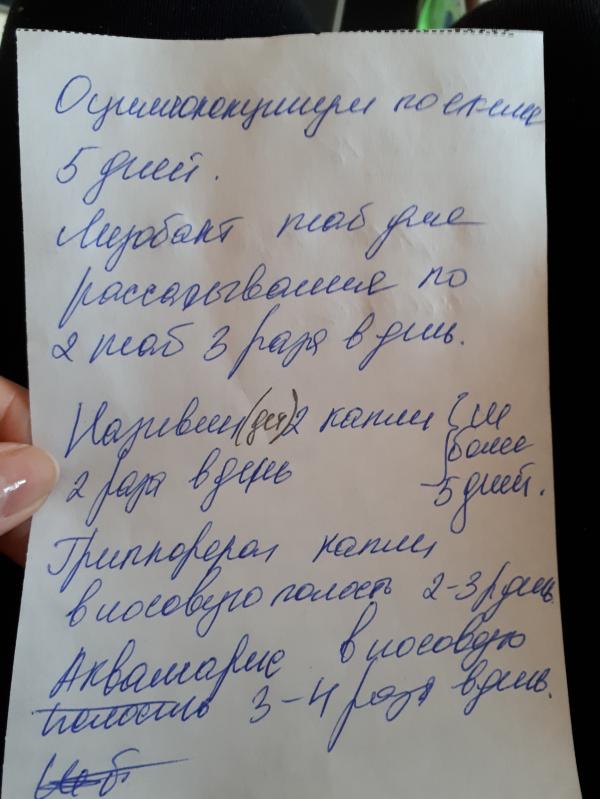 Оцилококцинум по схеме
5 дней.
Лизобакт таб для
рассасывания по
2 таб 3 раза в день.
Називин (дет) 2 капли не
2 раза в день более
5 дней.
Гриппферон капли
в носовую полость 2-3 р день
Аквамарис в носовую
полость 3-4 раза в день.